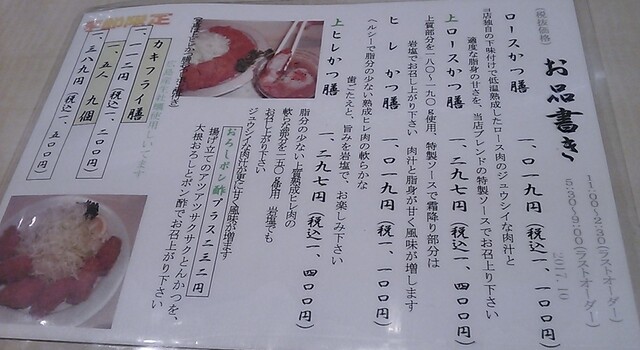 お品書き
(税抜価格)
11:00〜2:30(ラストオーダー)
5:30〜9:00(ラストオーダー)
2017.10
ロースかつ膳 一、〇一九円(税込一、一〇〇円)
当店独自の下味付けで低温熟成したロース肉のジューシイな肉汁と
適度な脂身の甘さを、当店ブレンドの特製ソースでお召上り下さい
上ロースかつ膳 一、二九七円(税込一、四〇〇円)
上質部分を一八〇〜一九〇g使用、特製ソースで霜降り部分は
岩塩でお召し上がり下さい 肉汁と脂身が甘く風味が増します
ヒレかつ膳 一、〇一九円(税込一、一〇〇円)
ヘルシーで脂分の少ない熟成ヒレ肉の軟らかな
歯ごたえと、旨みを岩塩で、お楽しみ下さい
上ヒレかつ膳 一、二九七円(税込一、四〇〇円)
脂分の少ない上質熟成ヒレ肉の
軟らな部分を一五〇g使用 岩塩でも
お召し上がり下さい
ジュウシイな肉汁が更に甘く風味が増ます
おろしポン酢プラス二三二円
揚げ立てのアツアツサクサクとんかつを、
大根おろしとポン酢でお召上がり下さい
季節限定
カキフライ膳
一、一一二円(税込一、二〇〇円)
九個
一、三八九円(税込一、五〇〇円)